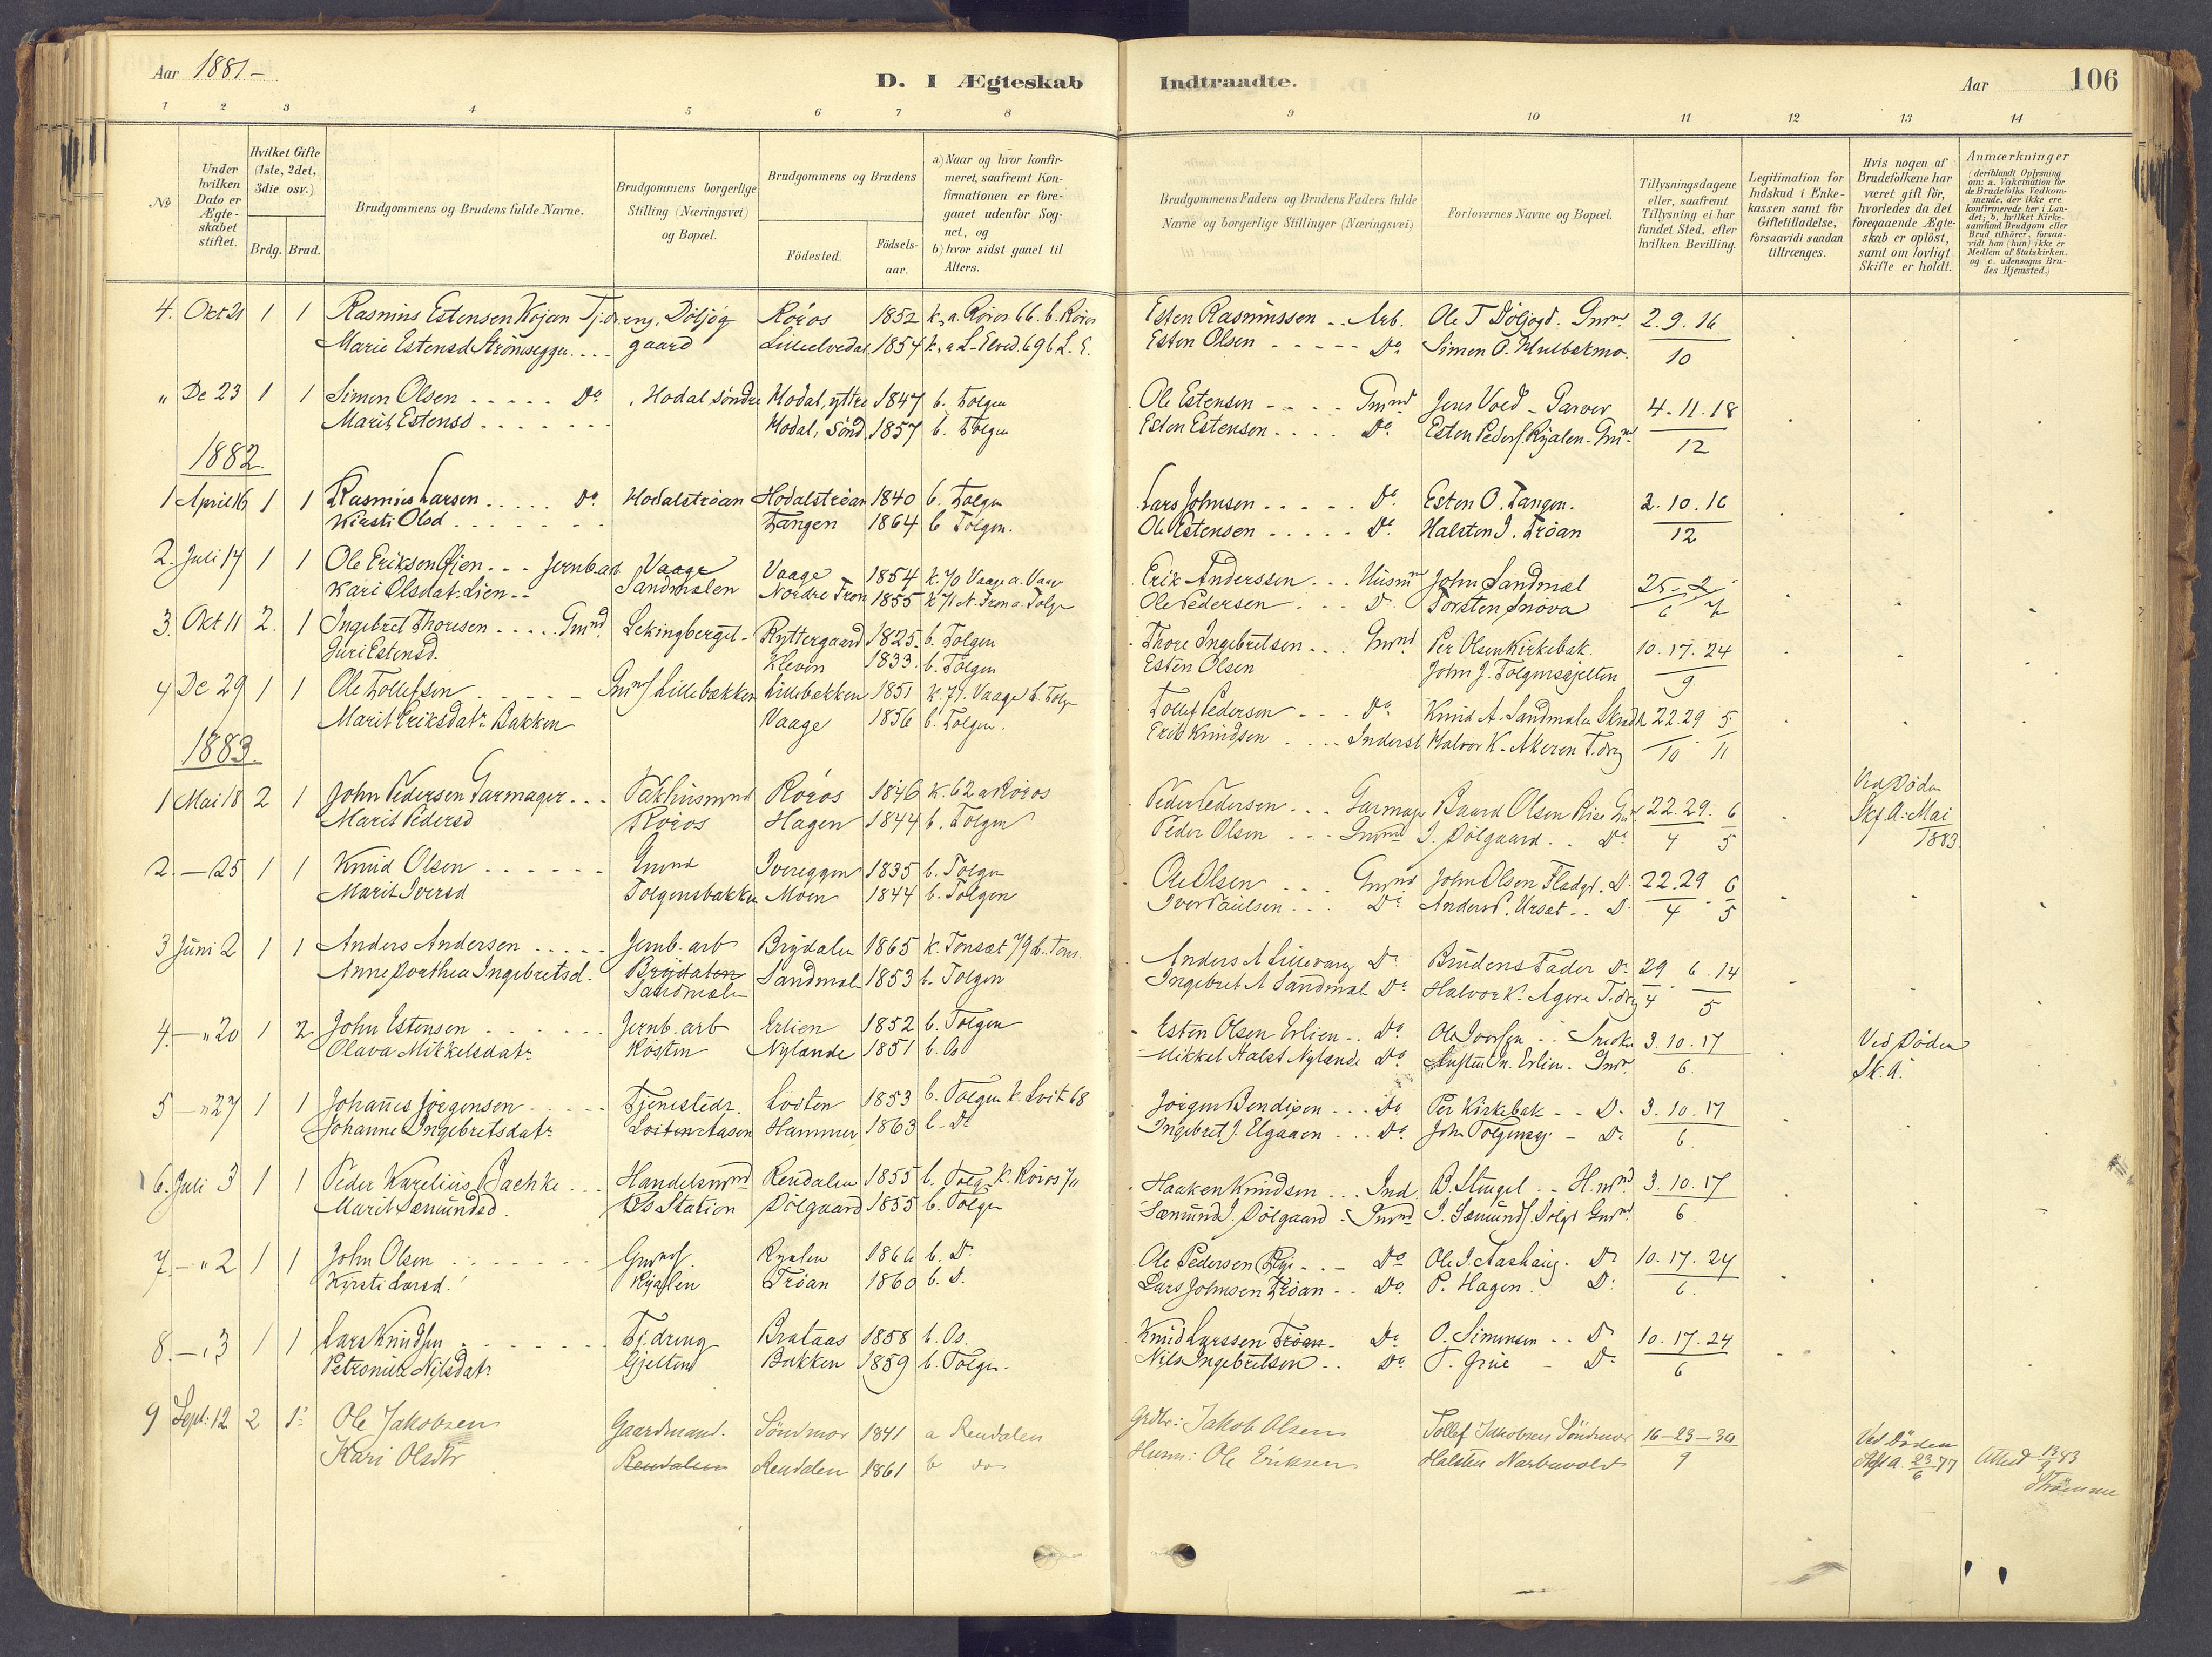 Aar 1881 –
D. I Ægteskab Indtraadte.
Aar
106
1 2 3 4 5 6 7 8 9 10 11 12 13 14
No
Under hvilken Dato er Ægteskabet stiftet.
Hvilket Gifte (1ste, 2det, 3die osv.)
Brdg. Brud.
Brudgommens og Brudens fulde Navne.
Brudgommens borgerlige Stilling (Næringsvei) og Bopæl.
Brudgommens og Brudens
Födested.
Födselsaar.
a) Naar og hvor konfirmeret, saafremt Konfirmationen er foregaaet udenfor Sognet, og
b) hvor sidst gaaet til Alters.
Brudgommens Faders og Brudens Faders fulde Navne og borgerlige Stillinger (Næringsvei)
Forlovernes Navne og Bopæl.
Tillysningsdagene eller, saafremt Tillysning ei har fundet Sted, efter hvilken Bevilling.
Legitimation for Indskud i Enkekassen samt for Giftetilladelse, forsaavidt saadan tiltrænges.
Hvis nogen af Brudefolkene har været gift för, hvorledes da det foregaaende Ægteskab er oplöst, samt om lovligt Skifte er holdt.
Anmærkninger (deriblandt Oplysning om: a. Vakcination for de Brudefolks Vedkommende, der ikke ere konfirmerede her i Landet; b. hvilket Kirkesamfund Brudgom eller Brud tilhörer, forsaavidt han (hun) ikke er Medlem af Statskirken, og c. udensogns Brudes Hjemsted.)
4. Okt 21 1 1 Rasmus Estensen Kojan Tj.dreng. Döljög Röros 1852 k, a. Röros 66. b. Röros Esten Rasmussen .. Arb. Ole T Döljogd. Gmnd 2. 9. 16
Marie Estensd Strömseggen .... gaard Lilleelvedal 1854 k, a L-Elved. 69 b L. E. Esten Olsen ..... Do Simen O. Hulbækmo. 10
" De 23 1 1 Simon Olsen ..... Do. Hodal söndre Hodal, yttre 1847 b. Tolgen Ole Estensen .... Gmnd Jens Vold - Garver 4. 11. 18
Marit Estensd ....... Hodal, Sönd. 1857 b. Tolgen Esten Estensen .... Do. Esten Peders. Ryalen. Gmnd 12
1882.
1 April 16 1 1 Rasmus Larsen ..... Do Hodalströan Hodalströan 1840 b. Tolgen Lars Johnsen ..... Do. Esten O. Langen. 2. 10. 16
Kirsti Olsd ....... Langen 1864 b Tolgen. Ole Estensen ..... Do. Halsten J. Tröan 12
2. Juli 14 1 1 Ole Eriksen Öien ... Jernb.arb Vaage Vaage 1854 k. 70 Vaage a. Vaage Erik Anderssen ... Husmnd John Sandmæl 25 - 2
Kari Olsdat. Lien -- Sandmælen Nordre Fron 1855 k 71 N. Fron a. Tolge Ole Pedersen ... D. Torsten Snova 6 7
3. Okt 11 2. 1 Ingebret Thoresen .... Gmnd. Lekingberget - Ryttergaard 1825. b. Tolgen Thore Ingebretsen ... Gmnd Per Olsen Kirkebak. 10. 17. 24
Guri Estensd. Kleven 1833. b. Tolgen Esten Olsen John J. Tolgensgjelten 9
4 De 29 1 1 Ole Tollefsen ...... Gmnd Lillebækken Lillebækken 1851 k. 71. Vaage b. Tolge Tollef Pedersen ... Do Knud A. Sandmælen Skrædd. 22. 29 5
Marit Eriksdatr Bakken Vaage 1856 b. Tolgen. Erik Knudsen .... Inderst Halvor K. Akeren T.drg 10 11
1883.
1 Mai 18 2 1 John Pedersen Garmager ... Pakhusmnd Röros 1846 k. 62 a Röros Peder Pedersen ... Garmager Baard Olsen Rise Gmd 22. 29. 6 Ved Döden
Marit Pedersd Röros Hagen 1844 b. Tolgen Peder Olsen ... Gmnd J. Dölgaard .. Do 4 5 Skf. A. Mai 1883.
2. - 25 1 1 Knud Olsen ...... Gmnd Ivereggen 1835 b. Tolgen Ole Olsen ... Gmnd John Olsen Fladgd. D. 22. 29 6
Marit Iversd Tolgensbakken Moen 1844 b. Tolgen Iver Paulsen ... Do Anders P. Urset .. D. 4 5
3 Juni 2 1 1 Anders Andersen ..... Jernb. arb Brydalen 1865 k. Tonsæt 79 b. Tons. Anders A Lillevang Do Brudens Fader Do 29 6. 14
Anne Dorthea Ingebretsd. Brydalen Sandmælen Sandmæl 1853 b. Tolgen Ingebret A Sandmæl Do Halvor K. Agere T.drg 4 5
4. - " 20 1 2 John Estensen ...... Jernb. arb Erlien 1852 b. Tolgen Esten Olsen Erlien .. Do Ole Iversen .. Snedker 3. 10. 17 Ved Döden
Olava Mikkelsdatr Kösten Nylænde 1851 b. Os Mikkel Halst Nylænde Do. Erlien. Gmd. 6. Sk. A.
5 - " 27 1 1 Johannes Jörgensen ..... Tjenestedr. Löiten 1853 b. Tolgen k. Löit 68 Jörgen Bendixen ... Do Per Kirkebak -- D. 3. 10. 17
Johanne Ingebretsdatr Löiten Aasen Hammer 1863 b - Do Ingebret J. Elgaaen ... Do. John Tolgensgj - D. 6.
6. Juli 3 1 1 Peder Karelius Bachke ... Handelsmnd Rendalen 1855 b. Tolg. k. Röros 70 Haaken Knudsen ... Ind. B. Stengel .. H.mnd. 3. 10. 17
Marit Sæmundsd. Os Station Dölgaard 1855 b. Tolgen Sæmund J. Dölgaard . Gmnd J. Sæmunds. Dölgd Gmd. 6
7. - " 2 1 1 John Olsen ....... Gmnds. Ryalen 1866 b. Do Ole Pedersen Rye ... Do Ole J. Aashaug. Do 10. 17. 24
Kirsti Larsd. Ryalen Tröan 1860 b. D. Lars Johnsen Tröan -- Do. P. Hagen .. D. 6.
8. - " 3 1 1 Lars Knudsen ....... Tj. dreng Brataas 1858 b. Os. Knud Larssen Tröan - Do O. Simensen .. Do 10. 17. 24
Petronille Nilsdatr Gjelten Bakken 1859 b. Tolgen. Nils Ingebretsen .. Do. T. Grue - Do 6
9 Sept: 12 2 1: Ole Jakobsen Gaardmand. Söndmor 1841 a Rendalen Grdbr: Jakob Olsen Tollef Jakobsen Söndmor 16 - 23 - 30 Ved Döden
Kari Olsdtr Rendalen Rendalen 1861 b do Husm: Ole Eriksen Halsten Narbuvold 9 Skf. a. 23/6 77 Attest 13/9 83
Strömme